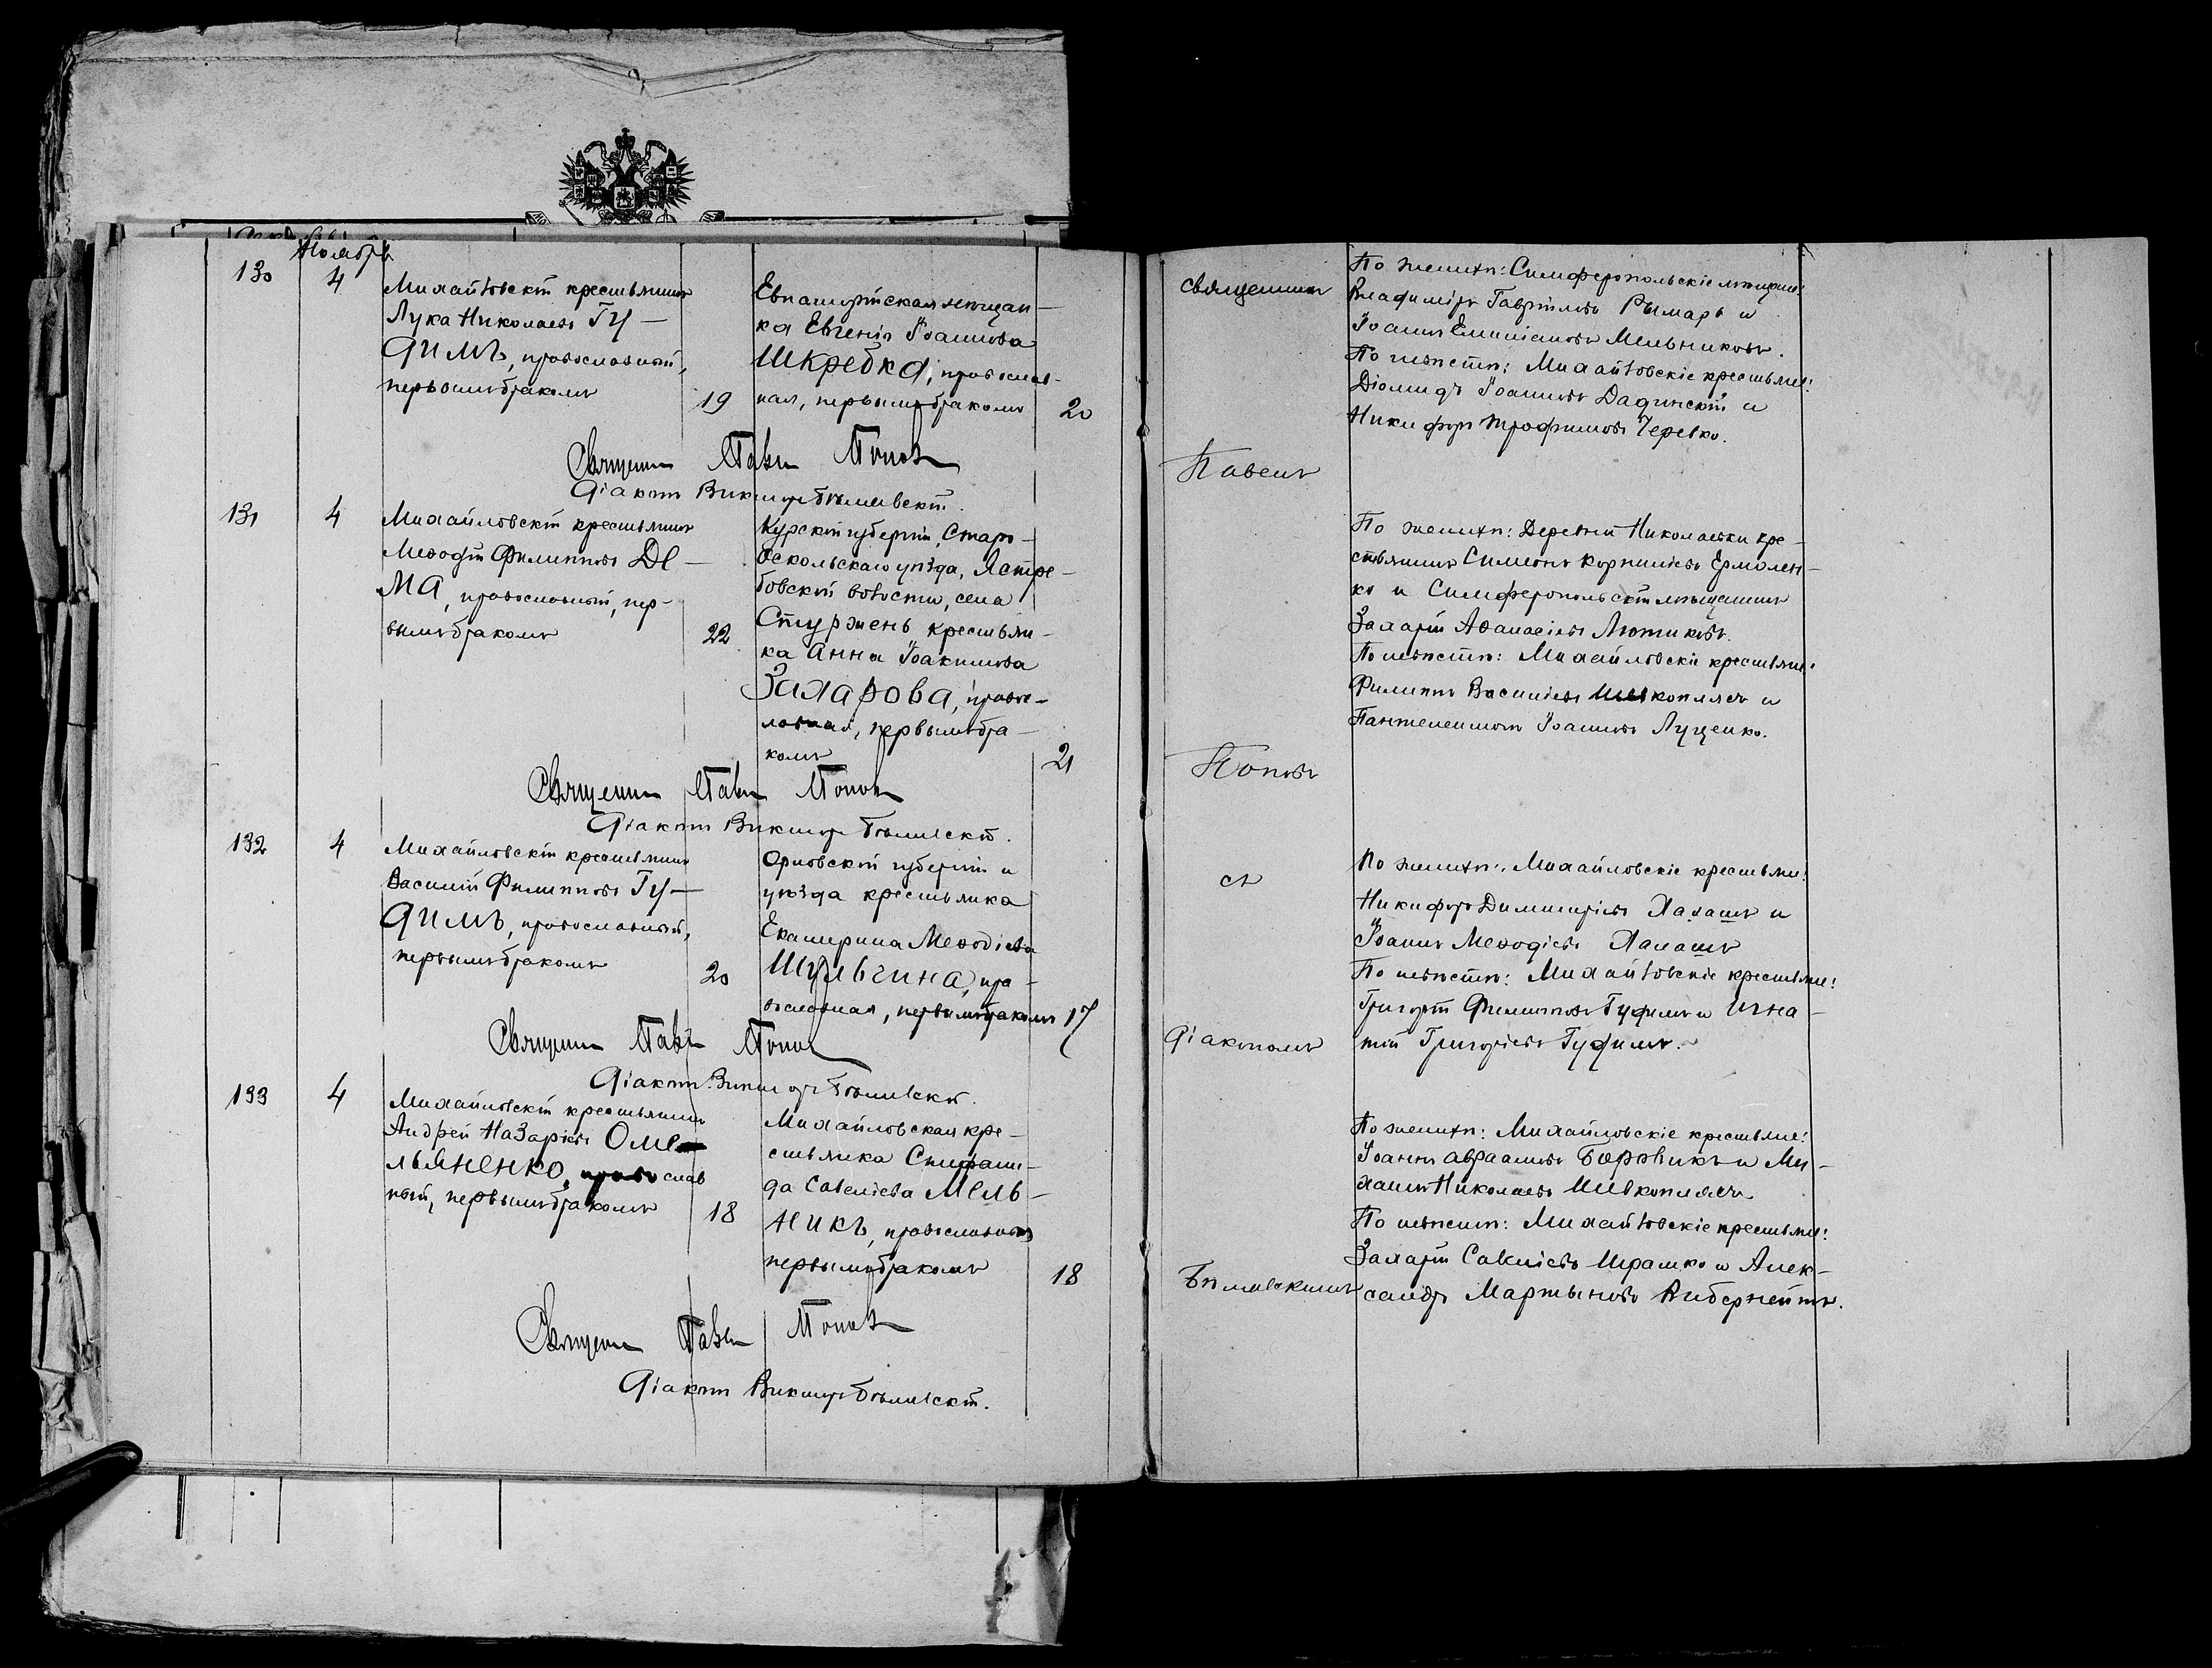 Ноябрь
130
4
Михайловскій крестьянинъ
Лука Николаевъ Гу-
димъ, православный,
первымъ бракомъ
19
Евпаторійская мещан-
ка Евгенія Іоаннова
Шкребка, православ-
ная, первымъ бракомъ
20
Священникъ Павелъ Поповъ
Діаконъ Викторъ Бѣлинскій.
131
4
Михайловскій крестьянинъ
Меѳодій Филипповъ Де-
ма, православный, пер-
вымъ бракомъ
22
Курской губерніи, Старо-
оскольскаго уѣзда, Ястре-
бовской волости, села
Стужень крестьян-
ка Анна Іоакимова
Захарова, правос-
лавная, первымъ бра-
комъ
21
Священникъ Павелъ Поповъ
Діаконъ Викторъ Бѣлинскій.
132
4
Михайловскій крестьянинъ
Василій Филипповъ Гу-
димъ, православный,
первымъ бракомъ
20
Орловской губерніи и
уѣзда крестьянка
Екатерина Меѳодіева
Шульгина, пра-
вославная, первымъ бракомъ
17
Священникъ Павелъ Поповъ
Діаконъ Викторъ Бѣлинскій.
133
4
Михайловскій крестьянинъ
Андрей Назаріевъ Оме
льяненко, православ
ный, первымъ бракомъ
18
Михайловская кре-
стьянка Стефани-
да Савеліева Мель-
никъ, православная
первымъ бракомъ
18
Священникъ Павелъ Поповъ
Діаконъ Викторъ Бѣлинскій.
Священникъ
Павелъ
Поповъ
съ
Діакономъ
Бѣлинскимъ
По женихѣ: Симферопольскіе мѣщане:
Владиміръ Гавріиловъ Рымарь и
Іоаннъ Емиліановъ Мельниковъ.
По невѣстѣ: Михайловскіе крестьяне:
Діомидъ Іоанновъ Дадинскій и
Никифоръ Трофимовъ Черевко.
По женихѣ: Деревни Николаевки кре-
стьянинъ Симеонъ Корниліевъ Ермолен-
ко и Симферопольскій мѣщанинъ
Захарій Аѳанасіевъ Лютиковъ.
По невѣстѣ: Михайловскіе крестьяне:
Филиппъ Василіевъ Шевкоплясъ и
Пантелеимонъ Іоанновъ Луценко.
По женихѣ: Михайловскіе крестьяне:
Никифоръ Димитріевъ Халашъ и
Іоаннъ Меѳодіевъ Халашъ
По невѣстѣ: Михайловскіе крестьяне:
Григорій Филипповъ Гудимъ и Игна-
тій Григоріевъ Гудимъ.
По женихѣ: Михайловскіе крестьяне:
Іоаннъ Авраамовъ Боровикъ и Ми-
хаилъ Николаевъ Шевкоплясъ
По невѣстѣ: Михайловскіе крестьяне:
Захарій Савеліевъ Ирашко и Алек-
сандръ Мартыновъ Виберкейтъ.